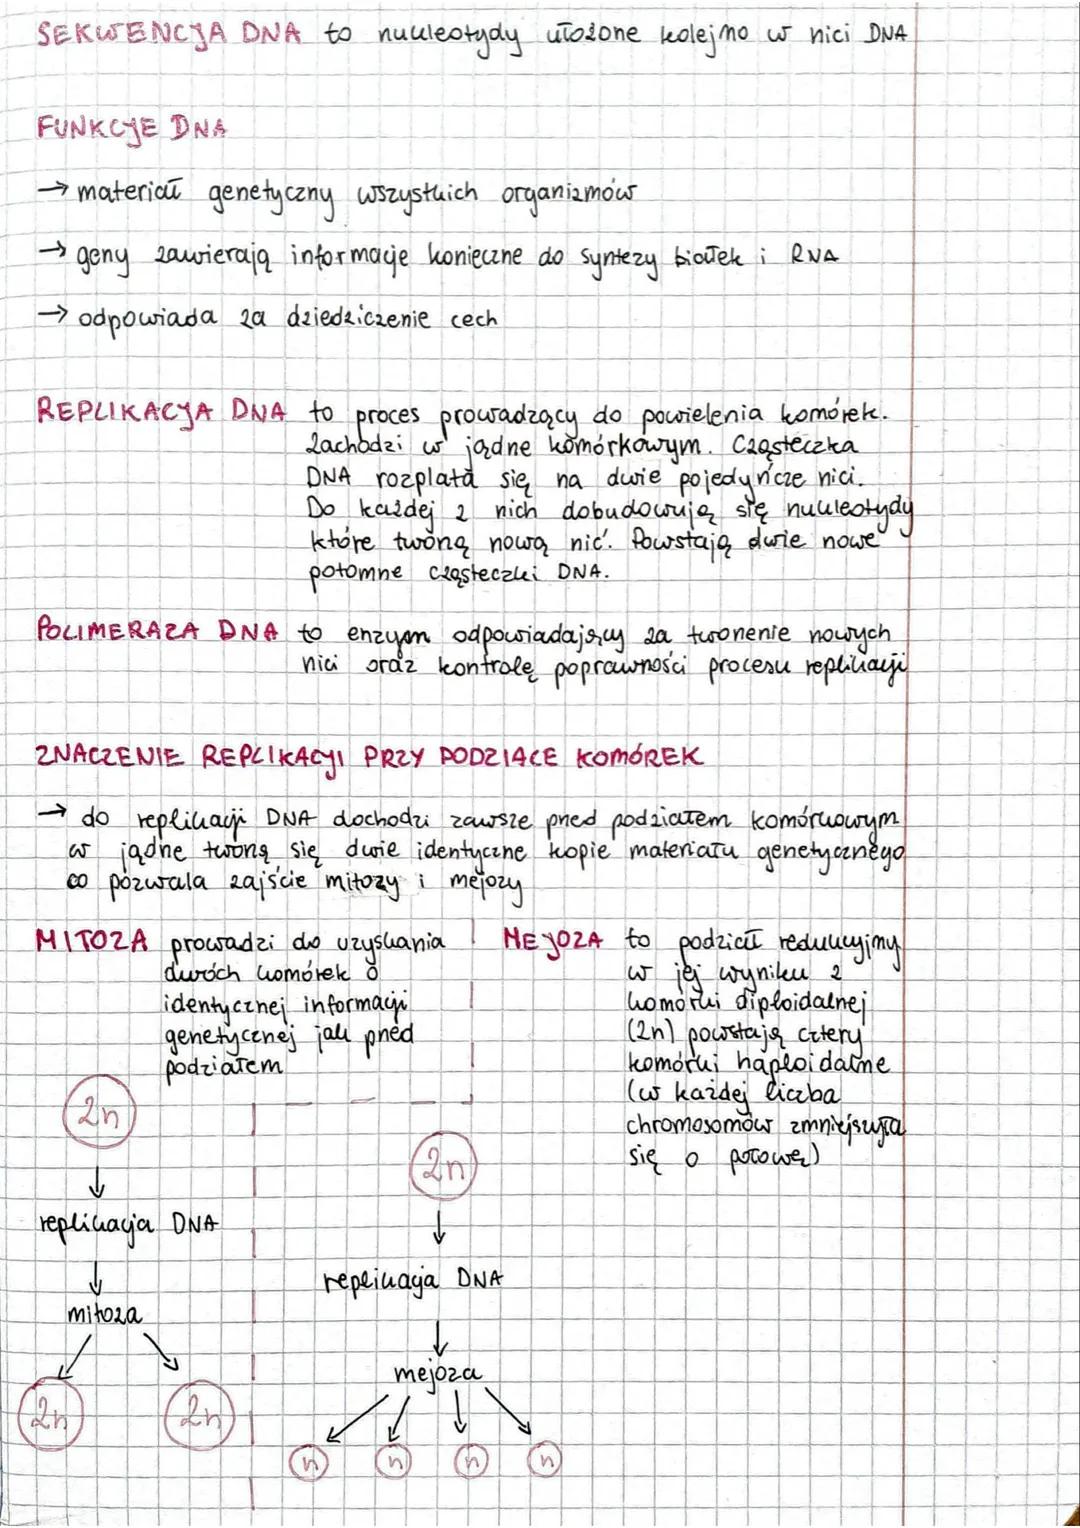 SEKWENCJA DNA to nukleotydy ułożone kolejno w nici DNA
FUNKCJE DNA
→ materiał genetyczny wszystkich organizmów
→ geny zawierają informacje konieczne do syntezy białek i RNA
→ odpowiada za dziedziczenie cech
REPLIKACJA DNA to proces prowadzący do powielenia komórek.
Zachodzi w jądrze komórkowym. Cząsteczka
DNA rozplata się na dwie pojedyńcze nici.
Do każdej z nich dobudowują się nukleotydy
które tworzą nową nić. Powstają dwie nowe
potomne cząsteczki DNA.
POLIMERAZA DNA to enzym odpowiadający za tworzenie nowych
nici oraz kontrolę poprawności procesu replikacji
ZNACZENIE REPLIKACJI PRZY PODZIALE KOMÓREK
→ do replikacji DNA dochodzi zawsze przed podziałem komórkowym
w jądrze tworzą się dwie identyczne kopie materiału genetycznego
co pozwala zajście mitozy i mejozy
MITOZA prowadzi do uzyskania
dwóch komórek o
identycznej informacji
genetycznej jak przed
podziałem
2n
↓
replikacja DNA
↓
mitoza
2n 2n
MEJOZA to podział redukcyjny
w jej wyniku z
komórki diploidalnej
(2n) powstają cztery
komórki haploidalne
(w każdej liczba
chromosomów zmniejszyła
się o połowę)
2n
↓
replikacja DNA
↓
mejoza
n n n n